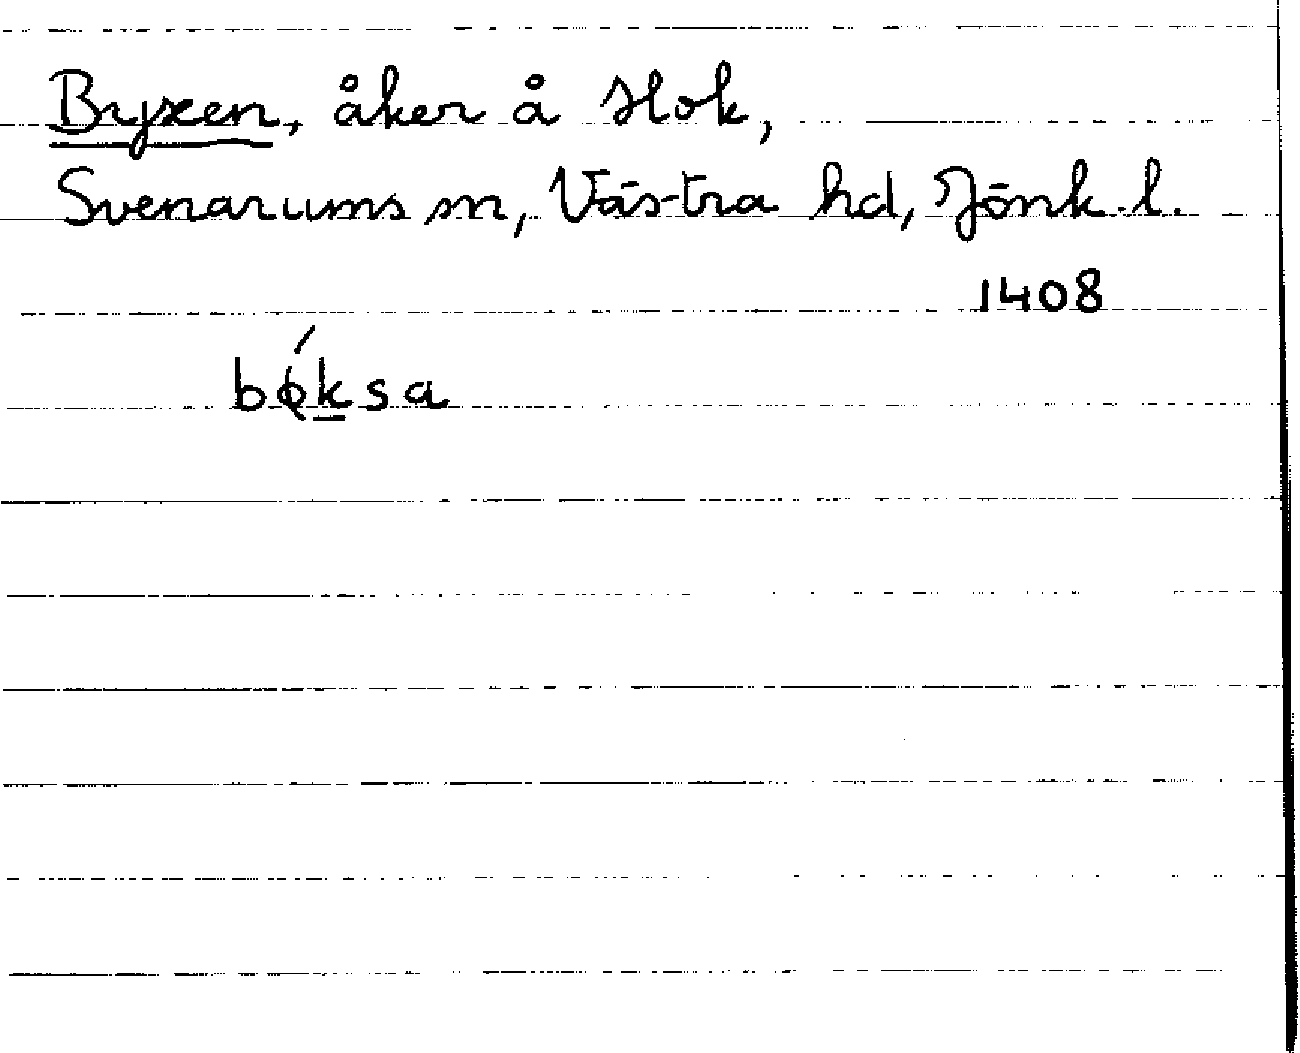 Byxen, åker å Hok,
Svenarums sn, Västra hd, Jönk. l.
1408
bǿksa